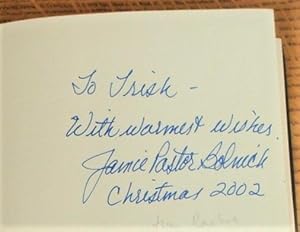 To Trish –
With warmest wishes
Jamie Pastor Bolnick
Christmas 2002